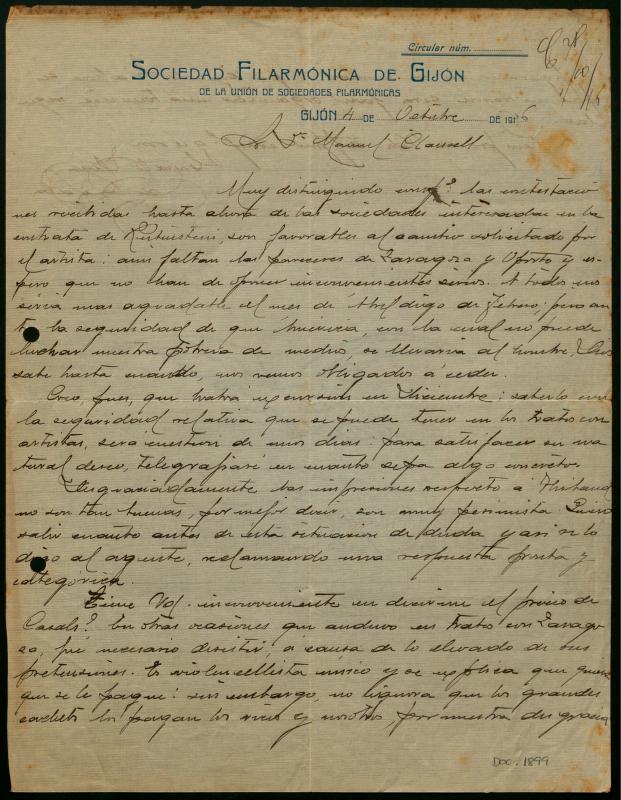 Circular núm.
SOCIEDAD FILARMÓNICA DE GIJÓN
DE LA UNIÓN DE SOCIEDADES FILARMÓNICAS
GIJÓN 4 DE Octubre DE 1916
Sr. Dn. Manuel Clausell
Muy distinguido consº: las contestacio
nes recibidas hasta ahora de las sociedades interesadas en la
contrata de Rubinstein, son favorables al cambio solicitado por
el artista: aun faltan los pareceres de Zaragoza y Oporto y es-
pero que no han de ofrecer inconvenientes serios. A todos nos
sería mas agradable el mes de Abril digo de Febrero; pero an
te la seguridad de que America, con la cual no puede
luchar nuestra pobreza de medios, se llevaria al hombre, Dios
sabe hasta cuando, nos vemos obligados á ceder.
Creo, pues, que habrá excursión en Diciembre: saberlo con
la seguridad relativa que se puede tener en los tratos con
artistas, sera cuestión de unos dias: para satisfacer su na
tural deseo, telegrafiaré en cuanto sepa algo concreto.
Desgraciadamente las impresiones respecto a Thibaud
no son tan buenas, por mejor decir, son muy pesimistas. Quiero
salir cuanto antes de esta situacion de duda y asi se lo
digo al agente, reclamando una respuesta pronta y
categórica.
Tiene Vd. inconveniente en decirme el precio de
Casals? En otras ocasiones que anduvo en tratos con Zarago
za, fue necesario desistir, a causa de lo elevado de sus
pretensiones. Es violoncellista unico y se explica que quiera
que se le pague: sin embargo, no ignora que los grandes
cachets los pagan los ricos y nosotros, por nuestra desgracia
Doc. 1899